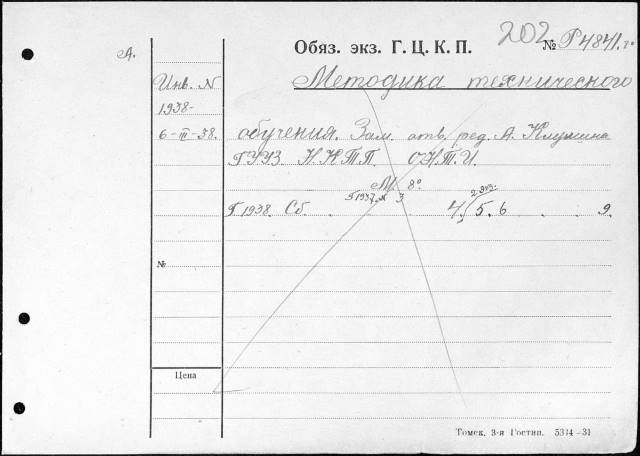 202
Обяз. экз. Г. Ц. К. П. № Р4841.
А.
Инв. N
Методика технического
1938-
6-III-38.
обучения. Зам. отв. ред. А.
ГУУЗ НКТП ОНТИ.
М. 8°
Г1937. N 3
2 экз.
Г. 1938. Сб. 4, 5. 6 9.
№
Цена
Томск, 3-я Гостип. 5314-31